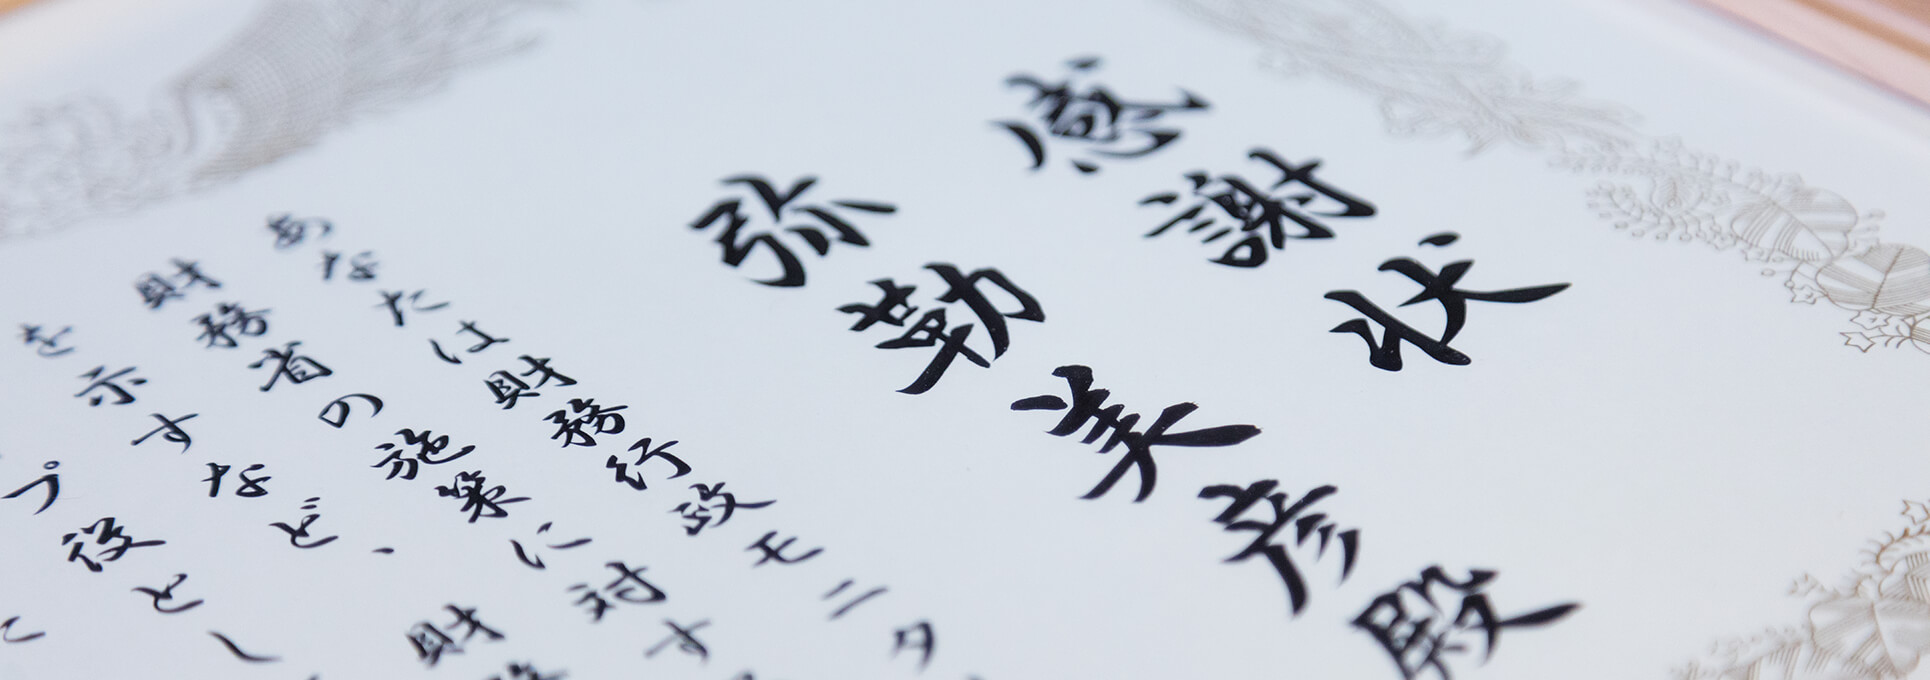 感謝状
弥勒美彦殿
あなたは財務行政モニタ
財務省の施策に対す
を示すなど、財務
プ役とし